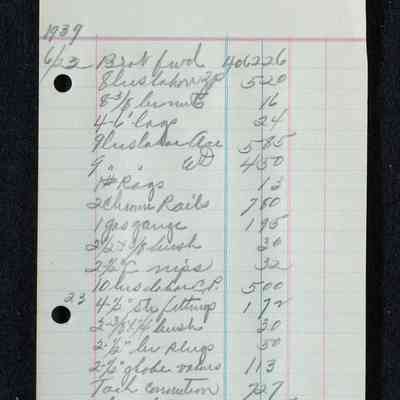 1939
6/23 Brot fwd 4062 26
8 hrs labor 5 20
8 3/8 hx nuts 16
4-6" lags 24
9 hrs labor Ace 5 85
9 " " WD 4 50
1# Rags 13
2 chrome Rails 7 80
1 gas gauge 1 95
2 1/2 x 3/8 bush 30
nips 32
10 hrs labor C.P. 5 00
23 4-1/2" str fittings 1 92
2-3/8 x 1/4 bush 30
2-1/2" br plugs 50
globe valves 1 13
Tach connection 7 27